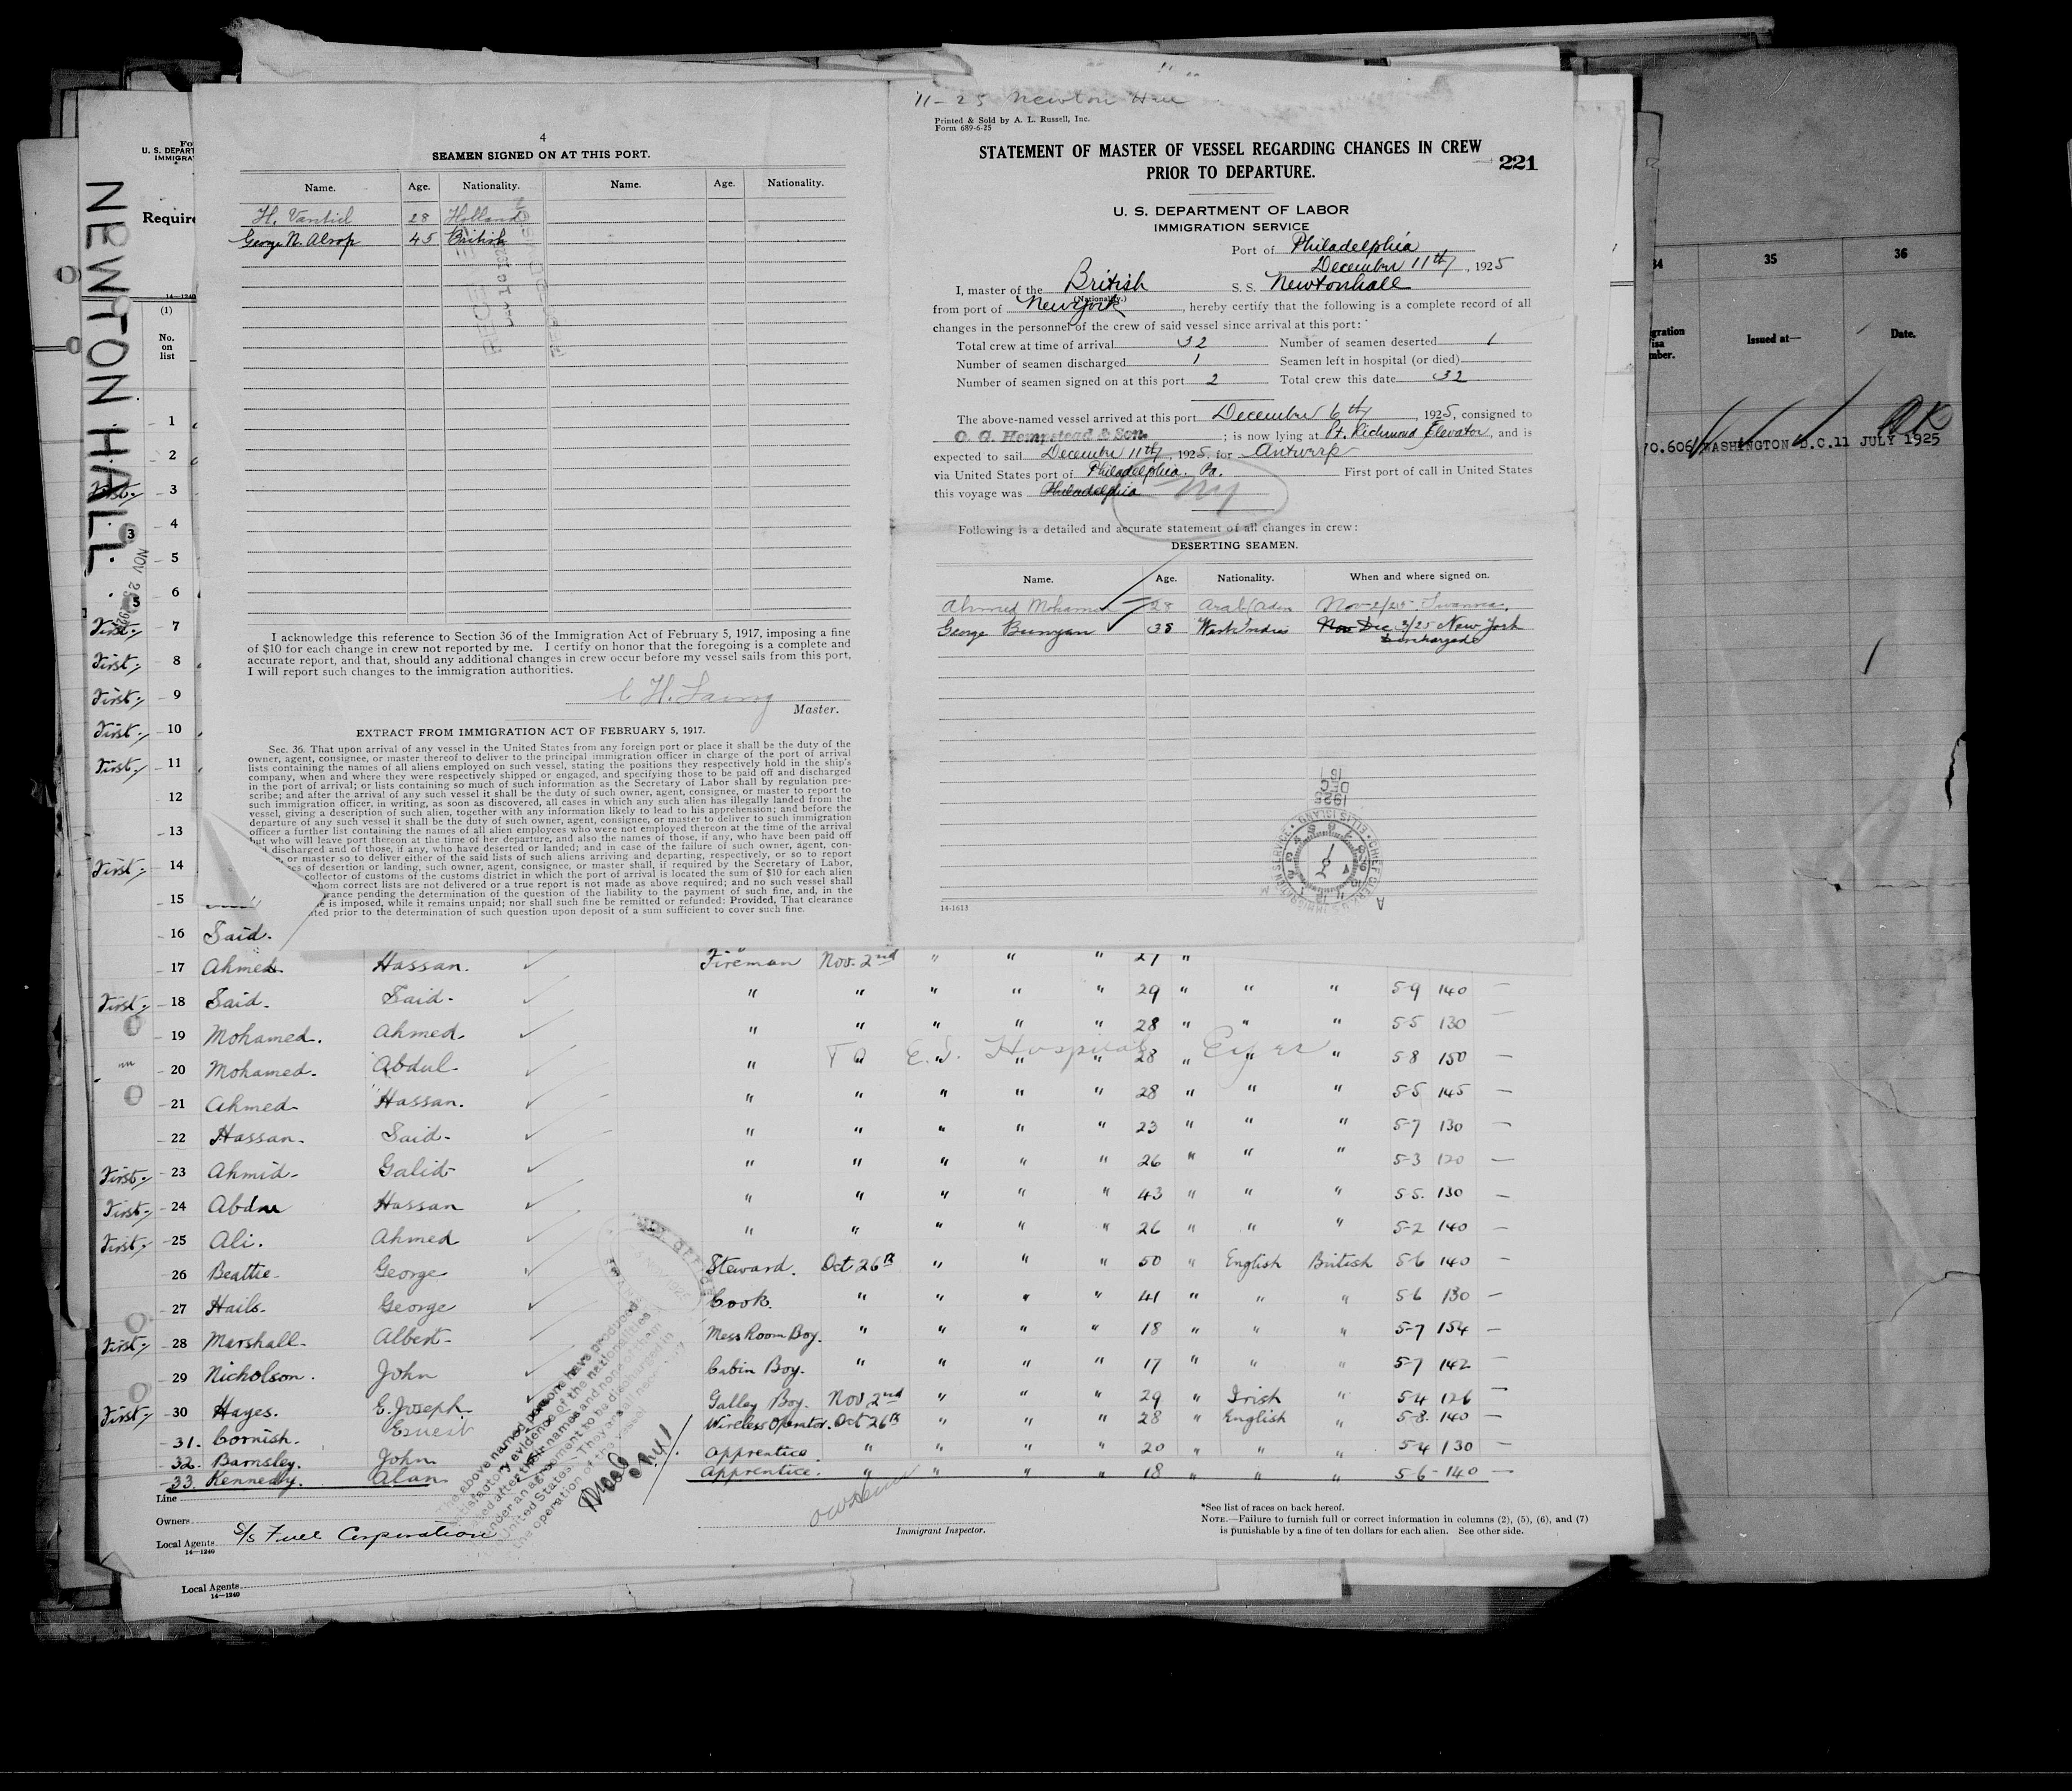 NEWTON HALL
U. S. DEPART
IMMIGRA
Require
14-1240
(1)
No.
on
list
4
SEAMEN SIGNED ON AT THIS PORT.
Name. Age. Nationality. Name. Age. Nationality.
H. Vantiel 28 Holland
George N. Alsop 45 British
I acknowledge this reference to Section 36 of the Immigration Act of February 5, 1917, imposing a fine
of $10 for each change in crew not reported by me. I certify on honor that the foregoing is a complete and
accurate report, and that, should any additional changes in crew occur before my vessel sails from this port,
I will report such changes to the immigration authorities.
C H. Laing
Master.
EXTRACT FROM IMMIGRATION ACT OF FEBRUARY 5, 1917.
Sec. 36. That upon arrival of any vessel in the United States from any foreign port or place it shall be the duty of the
owner, agent, consignee, or master thereof to deliver to the principal immigration officer in charge of the port of arrival
lists containing the names of all aliens employed on such vessel, stating the positions they respectively hold in the ship's
company, when and where they were respectively shipped or engaged, and specifying those to be paid off and discharged
in the port of arrival; or lists containing so much of such information as the Secretary of Labor shall by regulation pre-
scribe; and after the arrival of any such vessel it shall be the duty of such owner, agent, consignee, or master to report to
such immigration officer, in writing, as soon as discovered, all cases in which any such alien has illegally landed from the
vessel, giving a description of such alien, together with any information likely to lead to his apprehension; and before the
departure of any such vessel it shall be the duty of such owner, agent, consignee, or master to deliver to such immigration
officer a further list containing the names of all alien employees who were not employed thereon at the time of the arrival
but who will leave port thereon at the time of her departure, and also the names of those, if any, who have been paid off
discharged and of those, if any, who have deserted or landed; and in case of the failure of such owner, agent, con-
or master so to deliver either of the said lists of such aliens arriving and departing, respectively, or so to report
es of desertion or landing, such owner, agent, consignee, or master shall, if required by the Secretary of Labor,
collector of customs of the customs district in which the port of arrival is located the sum of $10 for each alien
whom correct lists are not delivered or a true report is not made as above required; and no such vessel shall
rance pending the determination of the question of the liability to the payment of such fine, and, in the
e is imposed, while it remains unpaid; nor shall such fine be remitted or refunded: Provided, That clearance
ted prior to the determination of such question upon deposit of a sum sufficient to cover such fine.
11-25 Newton Hall
Printed & Sold by A. L. Russell, Inc.
Form 689-6-25
STATEMENT OF MASTER OF VESSEL REGARDING CHANGES IN CREW
PRIOR TO DEPARTURE.
221
U. S. DEPARTMENT OF LABOR
IMMIGRATION SERVICE
Port of Philadelphia
December 11th, 1925
I, master of the British S. S. Newtonhall
(Nationality.)
from port of New York, hereby certify that the following is a complete record of all
changes in the personnel of the crew of said vessel since arrival at this port:
Total crew at time of arrival 32 Number of seamen deserted 1
Number of seamen discharged 1 Seamen left in hospital (or died)
Number of seamen signed on at this port 2 Total crew this date 32
The above-named vessel arrived at this port December 6th, 1925, consigned to
O. G. Hempstead & Son; is now lying at Pt. Richmond Elevator, and is
expected to sail December 11th, 1925. for Antwerp
via United States port of Philadelphia. Pa. First port of call in United States
this voyage was Philadelphia NY
Following is a detailed and accurate statement of all changes in crew:
DESERTING SEAMEN.
Name. Age. Nationality. When and where signed on.
Ahmed Mohamed 28 Arab (Aden Nov-2/25- Swansea.
George Bunyan 38 West Indies Nov Dec 3/25 New York
Discharged
1925
DEC
14-1613
34 35 36
Issued at— Date.
70.606 WASHINGTON D.C. 11 JULY 1925
1
2
First 3
4
5
6
First 7
First 8
First 9
First 10
First 11
12
13
First 14
15
16 Said.
17 Ahmed Hassan. Fireman Nov. 2nd " " " 27 "
First 18 Said. Said. " " " " " 29 " " " 5-9 140 —
19 Mohamed. Ahmed. " " " " " 28 " " " 5-5 130 —
20 Mohamed. Abdul. " To E. I. Hospital 28 " Eyes " 5-8 150 —
21 Ahmed Hassan. " " " " " 28 " " " 5-5 145 —
22 Hassan. Said. " " " " " 23 " " " 5-7 130 —
First 23 Ahmid. Galid " " " " " 26 " " " 5-3 120 —
First 24 Abdu Hassan " " " " " 43 " " " 5-5. 130 —
First 25 Ali. Ahmed " " " " " 26 " " " 5-2 140 —
26 Beattie George Steward. Oct 26th " " " 50 " English British 5-6 140 —
27 Hails. George Cook. " " " " 41 " " " 5-6 130 —
First 28 Marshall. Albert Mess Room Boy. " " " " 18 " " " 5-7 154 —
29 Nicholson. John Cabin Boy. " " " " 17 " " " 5-7 142 —
First 30 Hayes. E. Joseph. Galley Boy. Nov. 2nd " " " 29 " Irish " 5-4 126 —
31. Cornish. Ernest Wireless Operator. Oct 26th " " " 28 " English " 5-8. 140 —
32. Barnsley. John Apprentice " " " " 20 " " " 5-4 130 —
33. Kennedy. Alan Apprentice. " " " " 18 " " " 5-6 140 —
The above named persons have produced
satisfactory evidence of the nationalities
Line
Owners
Local Agents S/S Fuel Corporation
14-1240
Immigrant Inspector.
*See list of races on back hereof.
NOTE.—Failure to furnish full or correct information in columns (2), (5), (6), and (7)
is punishable by a fine of ten dollars for each alien. See other side.
Local Agents
14-1240